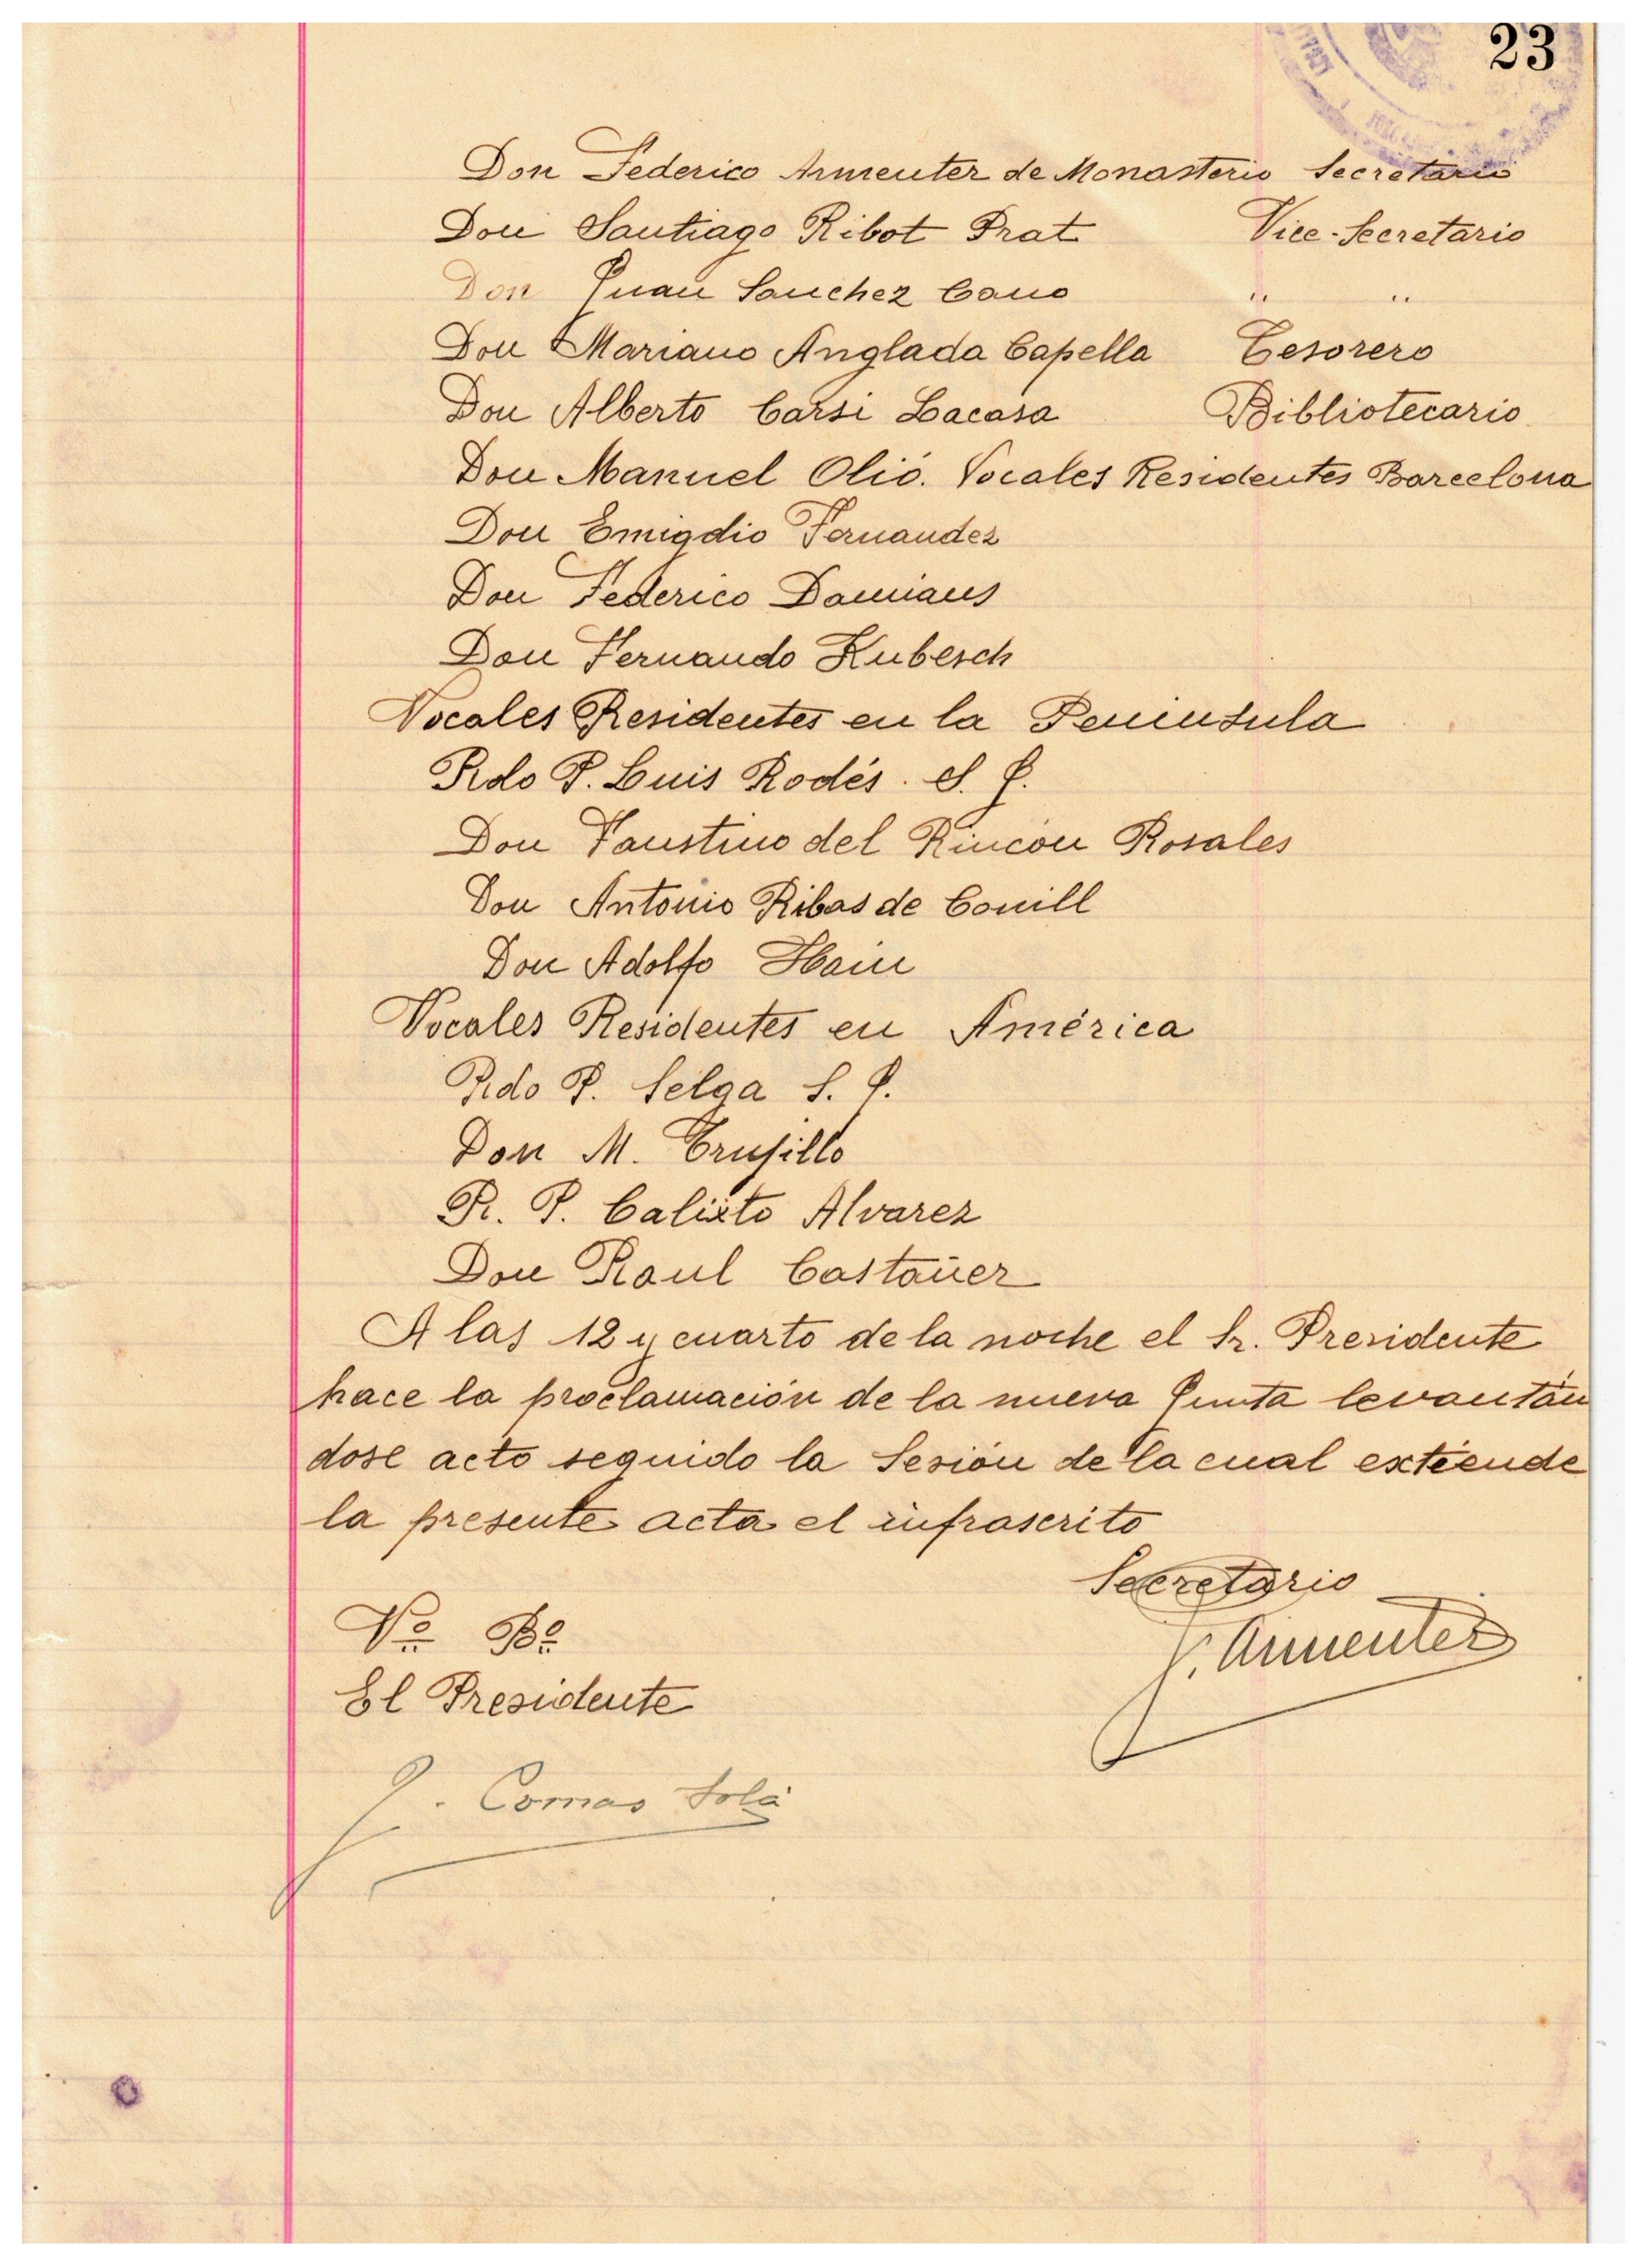 23
Don Federico Armenter de Monasterio Secretario
Don Santiago Ribot Prat Vice-Secretario
Don Juan Sanchez Cano " "
Don Mariano Anglada Capella Tesorero
Don Alberto Carsi Lacasa Bibliotecario
Don Manuel Olió. Vocales Residentes Barcelona
Don Emigdio Fernandez
Don Federico Damians
Don Fernando Kubesch
Vocales Residentes en la Peninsula
Rdo P. Luis Rodés. S. J.
Don Faustino del Rincón Rosales
Don Antonio Ribas de Conill
Don Adolfo Hain
Vocales Residentes en América
Rdo P. Selga S. J.
Don M. Trujillo
R. P. Calixto Alvarez
Don Raul Castañer
A las 12 y cuarto de la noche el Sr. Presidente
hace la proclamación de la nueva Junta levantán
dose acto seguido la Sesión de la cual extiende
la presente acta el infrascrito
Secretario
F. Armenter
Vº Bº
El Presidente
J. Comas Solá